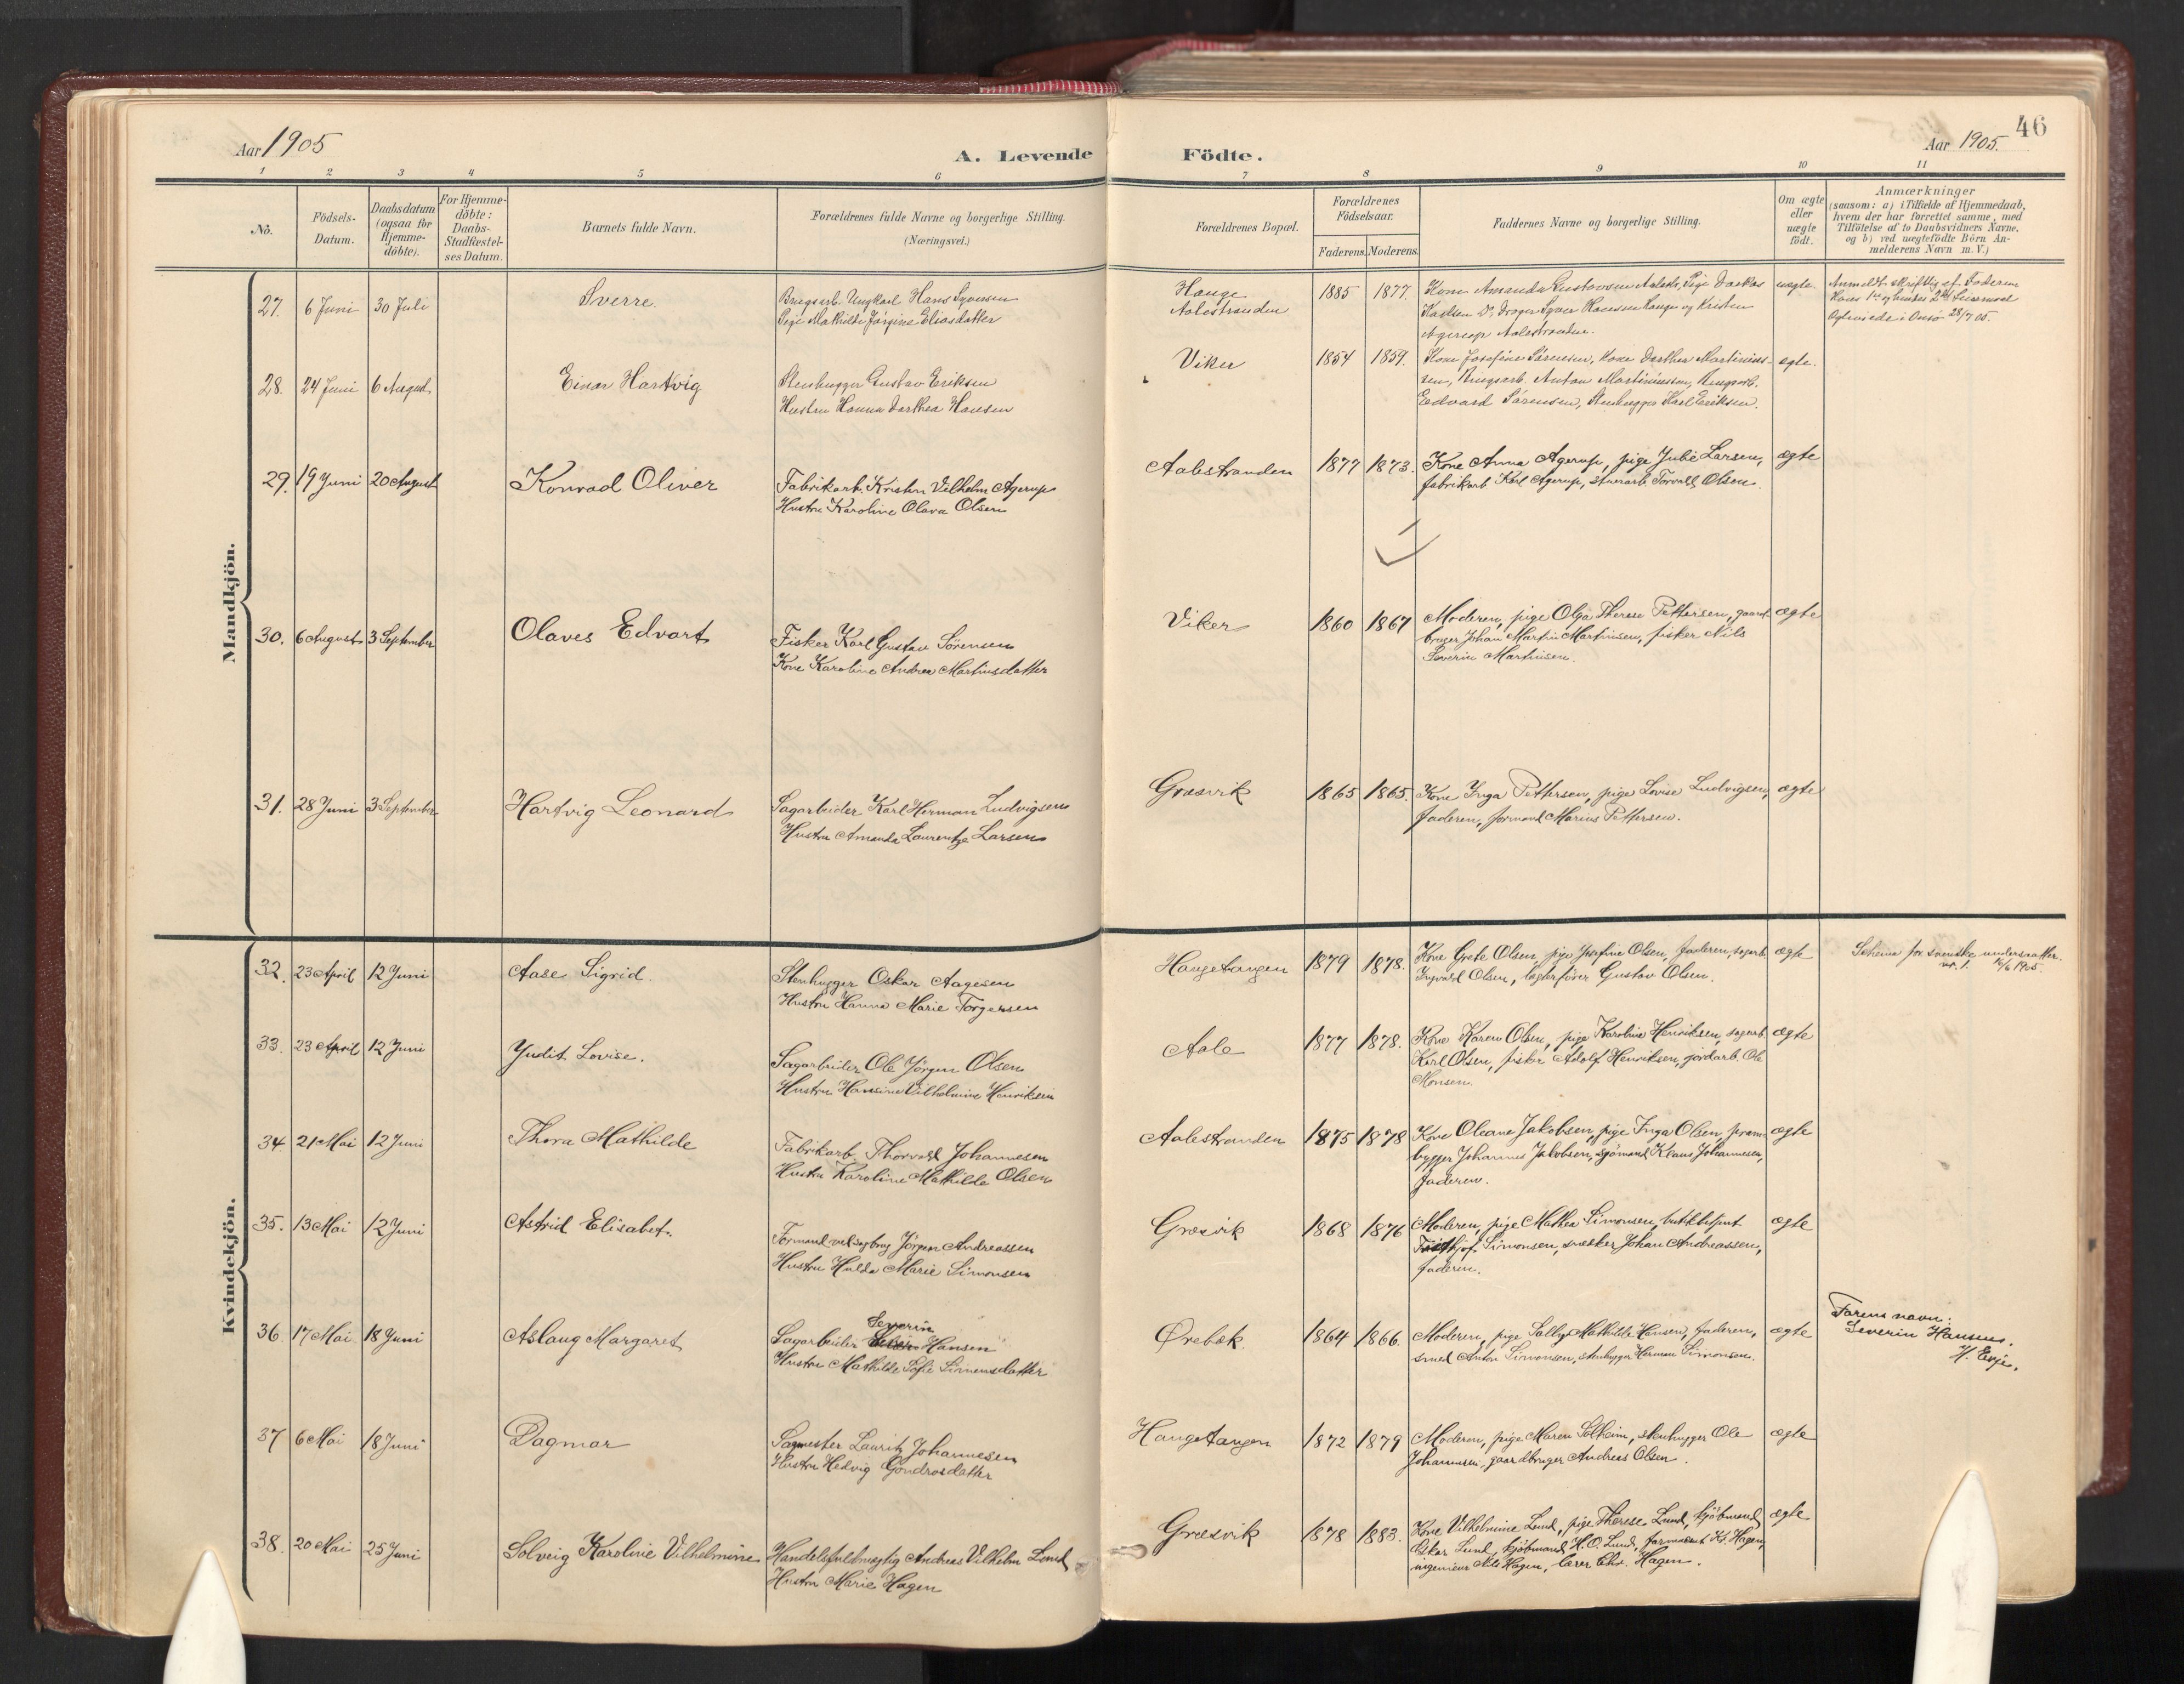 46
Aar 1905
A. Levende Födte.
Aar 1905.
1 2 3 4 5 6 7 8 9 10 11
No.
Födsels-
Datum.
Daabsdatum
(ogsaa for
Hjemme-
döbte).
For Hjemme-
döbte:
Daabs-
Stadfæstel-
ses Datum.
Barnets fulde Navn.
Forældrenes fulde Navne og borgerlige Stilling.
(Næringsvei.)
Forældrenes Bopæl.
Forældrenes
Födselsaar.
Faderens. Moderens.
Faddernes Navne og borgerlige Stilling.
Om ægte
eller
uægte
födt.
Anmærkninger
(saasom: a) i Tilfælde af Hjemmedaab,
hvem der har forrettet samme, med
Tilföielse af to Daabsvidners Navne,
og b) ved uægtefödte Börn An-
melderens Navn m. V.)
Mandkjön.
27. 6 Juni 30 Juli
Sverre.
Brugsarb. Ungkarl Hans Syversen
Pige Mathilde Jørgine Eliasdatter
Hauge
Aalestranden
1885 1877.
Kone Amanda Gustavsen Aalestr., Pige Dorkas
Karlsen Do, Syver Hansen Hauge og Kristen
Agerup Aalestranden.
uægte.
Anmeldt skriftlig af Faderen
Hans 1ste og hendes 2det Leiermaal
Ægteviede i Onsö 28/7 05.
28. 24 Juni 6 August
Einar Hartvig
Stenhugger Gustav Eriksen
Hustru Hanna Dorthea Hansen
Viker
1854 1859.
Kone Josefine Sörensen, Kone Dorthea Martinius-
sen, Brugsarb. Anton Martiniussen, Brugsarb.
Edvard Sörensen, Stenhugger Karl Eriksen.
ægte.
29. 19 Juni 20 August
Konrad Oliver
Fabrikarb. Kristen Vilhelm Agerup
Hustru Karoline Olava Olsen
Aalestranden
1877 1873.
Kone Anna Agerup, pige Julie Larsen,
fabrikarb Karl Agerup, stuerarb Torvald Olsen.
ægte
30. 6 August 3 September
Olaves Edvart
Fisker Karl Gustav Sörensen
Kone Karoline Andrea Martinsdatter
Viker
1860 1867
Moderen, pige Olga Therese Pettersen, gaard-
bruger Johan Martin Martinsen, fisker Nils
Severin Martinsen.
ægte
31. 28 Juni 3 September
Hartvig Leonard
Sagarbeider Karl Herman Ludvigsen
Hustru Amanda Laurentze Larsen
Græsvik
1865 1865.
Kone Inga Pettersen, pige Lovise Ludvigsen,
faderen, formand Marius Pettersen.
ægte
Kvindekjön.
32. 23 April 12 Juni
Aase Sigrid.
Stenhugger Oskar Aagesen
Hustru Hanna Marie Torgersen
Haugetangen
1879 1878.
Kone Grete Olsen, pige Josefine Olsen, faderen, sagarb.
Ingvald Olsen, Gustav Olsen.
ægte
Schema for svenske undersaatter.
nr. 1. 16/6 1905.
33. 23 April 12 Juni
Judit Lovise.
Sagarbeider Ole Jörgen Olsen
Hustru Hansine Vilhelmine Henriksen
Aale
1877 1878.
Kone Karen Olsen, pige Karoline Henriksen, sagarb.
Karl Olsen, fisker Adolf Henriksen, jordarb. Ole
Monsen.
ægte
34 21 Mai 12 Juni
Thora Mathilde
Fabrikarb. Thorvald Johannesen
Hustru Karoline Mathilde Olsen
Aalestranden
1875 1878
Kone Oleane Jakobsen, pige Inga Olsen, pram-
bygger Johannes Jakobsen, sjömand Klaus Johannesen,
faderen.
ægte
35. 13 Mai 12 Juni
Astrid Elisabet.
Formand ved sagbrug Jörgen Andreassen
Hustru Hulda Marie Simonsen
Græsvik
1868 1876
Moderen, pige Mathea Simonsen, butikbetjent
Frithjof Simonsen, snekker Johan Andreassen,
faderen.
ægte
36. 17 Mai 18 Juni
Aslaug Margaret
Severin
Sagarbeider Hansen
Hustru Mathilde Sofie Simensdatter
Ørebæk.
1864 1866.
Moderen, pige Mathilde Hansen, faderen,
smed Anton Simonsen, stenhugger Herman Simonsen.
ægte
Farens navn:
Severin Hansen.
H. Evje.
37 6 Mai 18 Juni
Dagmar
Sagmester Lauritz Johannesen
Hustru Hedvig Gundrosdatter
Haugetangen
1872 1879
Moderen, pige Maren Solheim, stenhugger Ole
Johannesen, gaardbruger Andreas Olsen.
ægte
38. 20 Mai 25 Juni
Solveig Karoline Vilhelmine
Handelsfuldmægtig Andreas Vilhelm Lund
Hustru Marie Hagen
Græsvik
1878 1883.
Kone Vilhelmine Lund, pige Therese Lund, kjöbmand
Oskar Lund, kjöbmand H. O. Lund, Hagen,
ingeniör Nils Hagen, lærer Chr. Hagen.
ægte